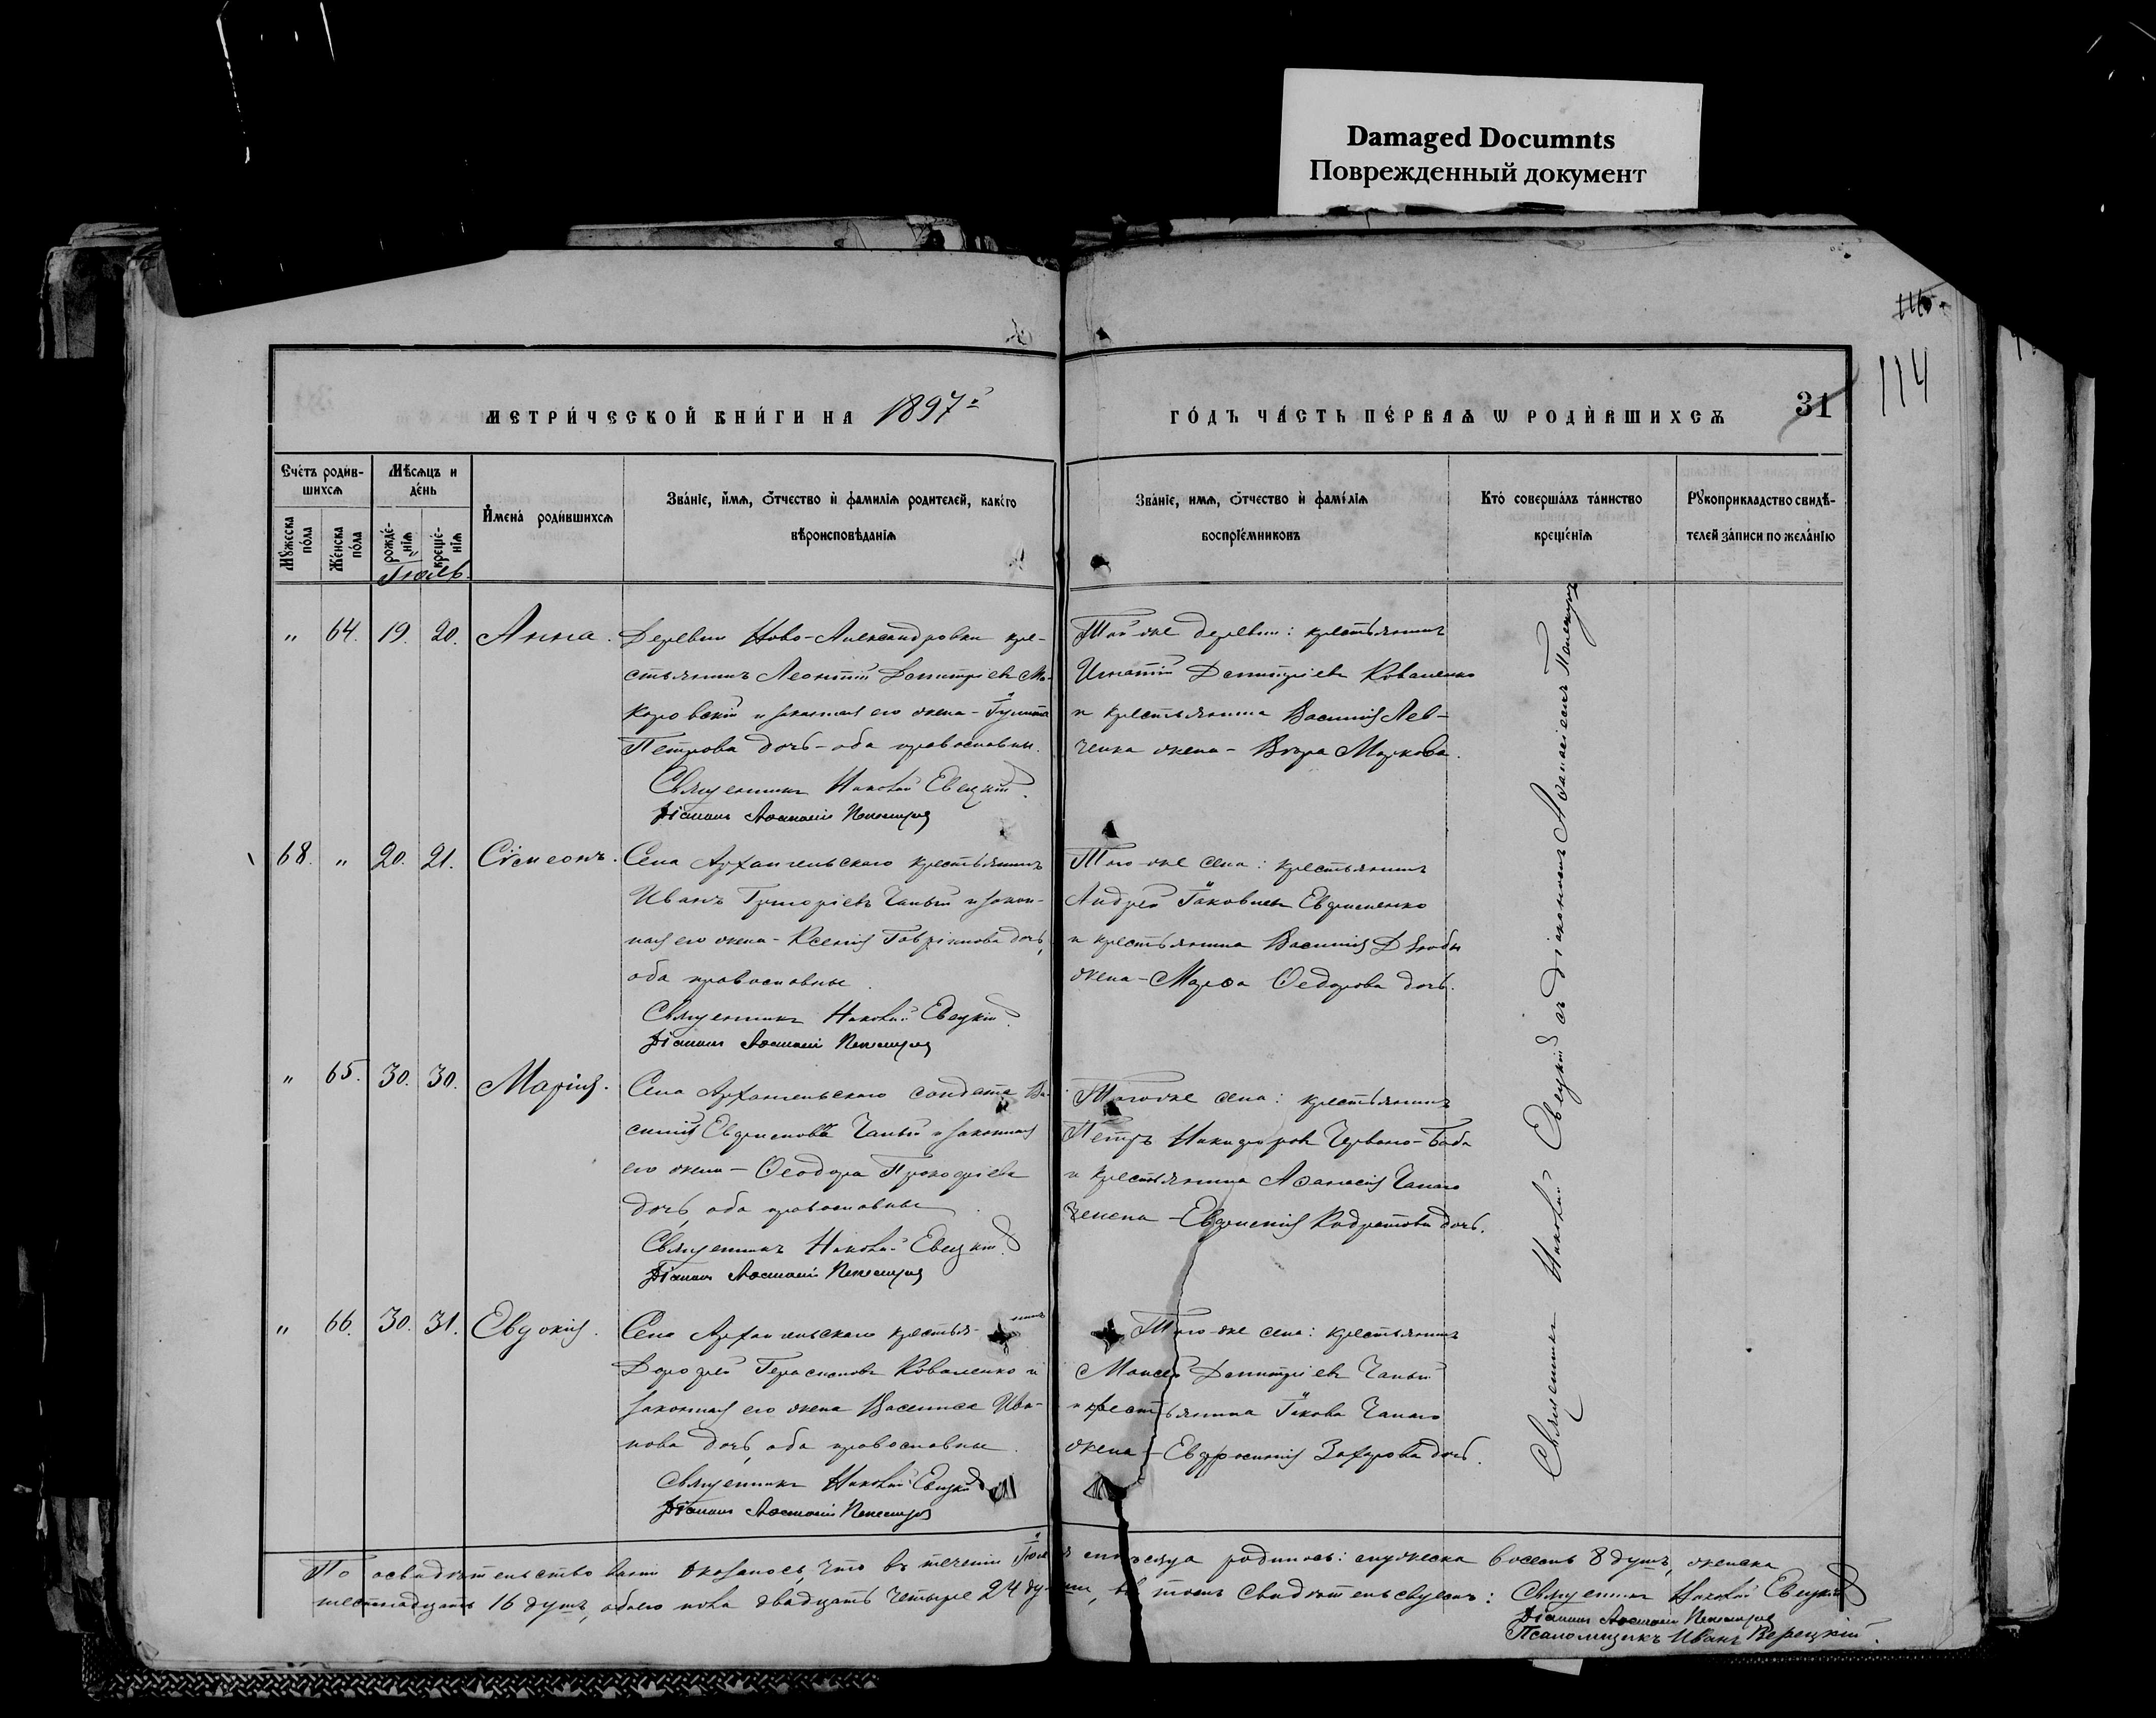 Damaged Documnts
Поврежденный документ
116.
114
МЕТРИ́ЧЕСКОЙ КНИ́ГИ НА 1897й
ГО́ДЪ ЧА́СТЬ ПЕ́РВАѦ Ѡ РОДИ́ВШИХСѦ
31
Сче́тъ роди́в-
шихсѧ
Мѣ́сѧцъ и
де́нь
Мꙋ́жеска
по́ла
Же́нска
по́ла
рожде́-
нїѧ
креще́-
нїѧ
Іюль.
И҆мена̀ роди́вшихсѧ
Зва́нїе, и҆́мѧ, ѻ҆́тчество и҆ фами́лїѧ роди́телей, како́гѡ
вѣроисповѣ́данїѧ
Зва́нїе, имѧ, ѻ҆́тчество и҆ фами́лїѧ
воспрїе́мниковъ
Кто̀ соверша́лъ та́инство
креще́нїѧ
Рꙋкоприкла́дство свидѣ́-
телей за́писи по жела́нїю
„ 64. 19. 20. Анна.
Деревни Ново-Александровки кре-
стьянинъ Леонтій Димитріевъ Ма-
каровскій и законная его жена - Іулитта
Петрова дочь - оба православны.
Священникъ Николай Евецкій
Діаконъ Аѳанасій
Той же деревни: крестьянинъ
Игнатій Димитріевъ Коваленко
и крестьянина Василія Лев-
ченка жена - Вѣра Маркова.
68. „ 20. 21. Сімеонъ.
Села Архангельскаго крестьянинъ
Иванъ Григоріевъ Чалый и закон-
ная его жена - Ксенія Гавріилова дочь,
оба православные.
Священникъ Николай Евецкій
Діаконъ Аѳанасій
Того же села: крестьянинъ
Андрей Іаковлевъ Евфименко
и крестьянина Василія Дзюбы
жена - Марѳа Ѳедорова дочь.
„ 65. 30. 30. Марія.
Села Архангельскаго солдата Ва-
силія Евфимовъ Чалый и законная
его жена - Ѳеодора Прокофіева
дочь, оба православные.
Священникъ Николай Евецкій
Діаконъ Аѳанасій
Того же села: крестьянинъ
Петръ Никифоровъ Червоно-Баба
и крестьянина Аѳанасія Чалаго
жена - Евфимія Кодратова дочь.
„ 66. 30. 31. Евдокія.
Села Архангельскаго крестья- нинъ
Дорофей Герасимовъ Коваленко и
законная его жена Василиса Ива-
нова дочь, оба православные.
Священникъ Николай Евецкій
Діаконъ Аѳанасій
Того же села: крестьянинъ
Моисей Димитріевъ Чалый
и крестьянина Іакова Чалаго
жена - Евфросинія Захарова дочь.
Священникъ Николай Евецкій съ діакономъ Аѳанасіемъ
По освидѣтельствованіи оказалось, что въ теченіи Іюля мѣсяца родилось: мужеска восемь 8 душъ, женска
шестнадцать 16 душъ, обоего пола двадцать четыре 24 души, въ томъ свидѣтельствуемъ: Священникъ Николай Евецкій
Діаконъ Аѳанасій
Псаломщикъ Иванъ Верецкій.